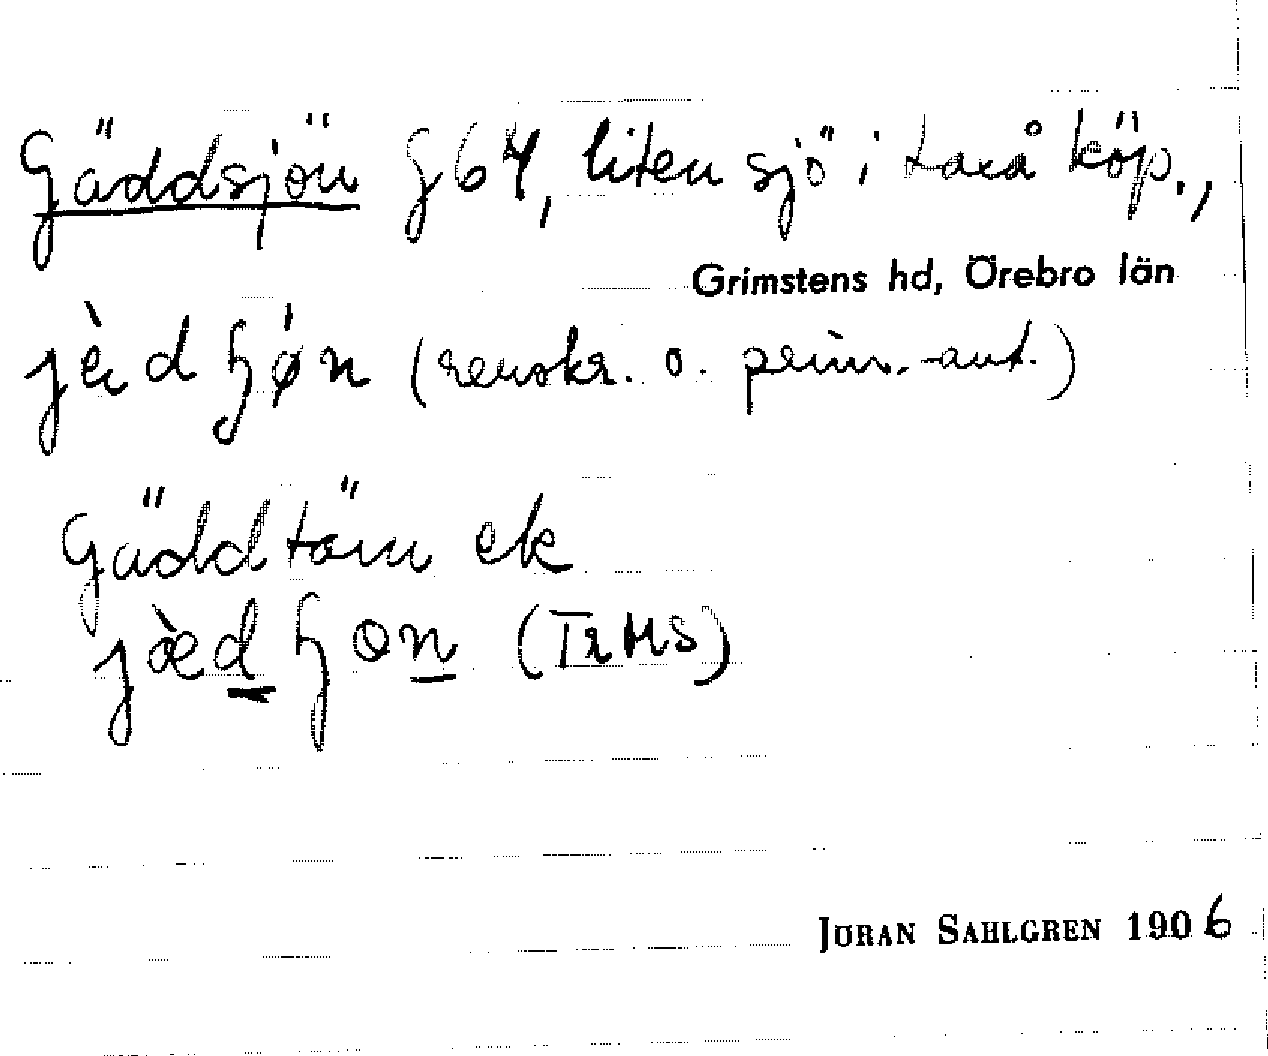 Gäddsjön G 64, liten sjö i Laxå köp.,
Grimstens hd, Örebro län
(renskr. o. prim.-ant.)
Gäddtärn ek
(TrMS)
JÖRAN SAHLGREN 1906